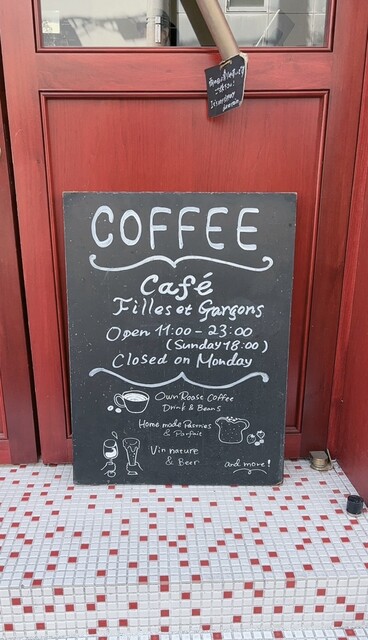 COFFEE
Café
Filles et Garçons
Open 11:00 - 23:00
(Sunday 18:00)
Closed on Monday
Own Roast Coffee
Drink & Beans
Home made Pastries
& Parfait
Vin nature
& Beer
and more!